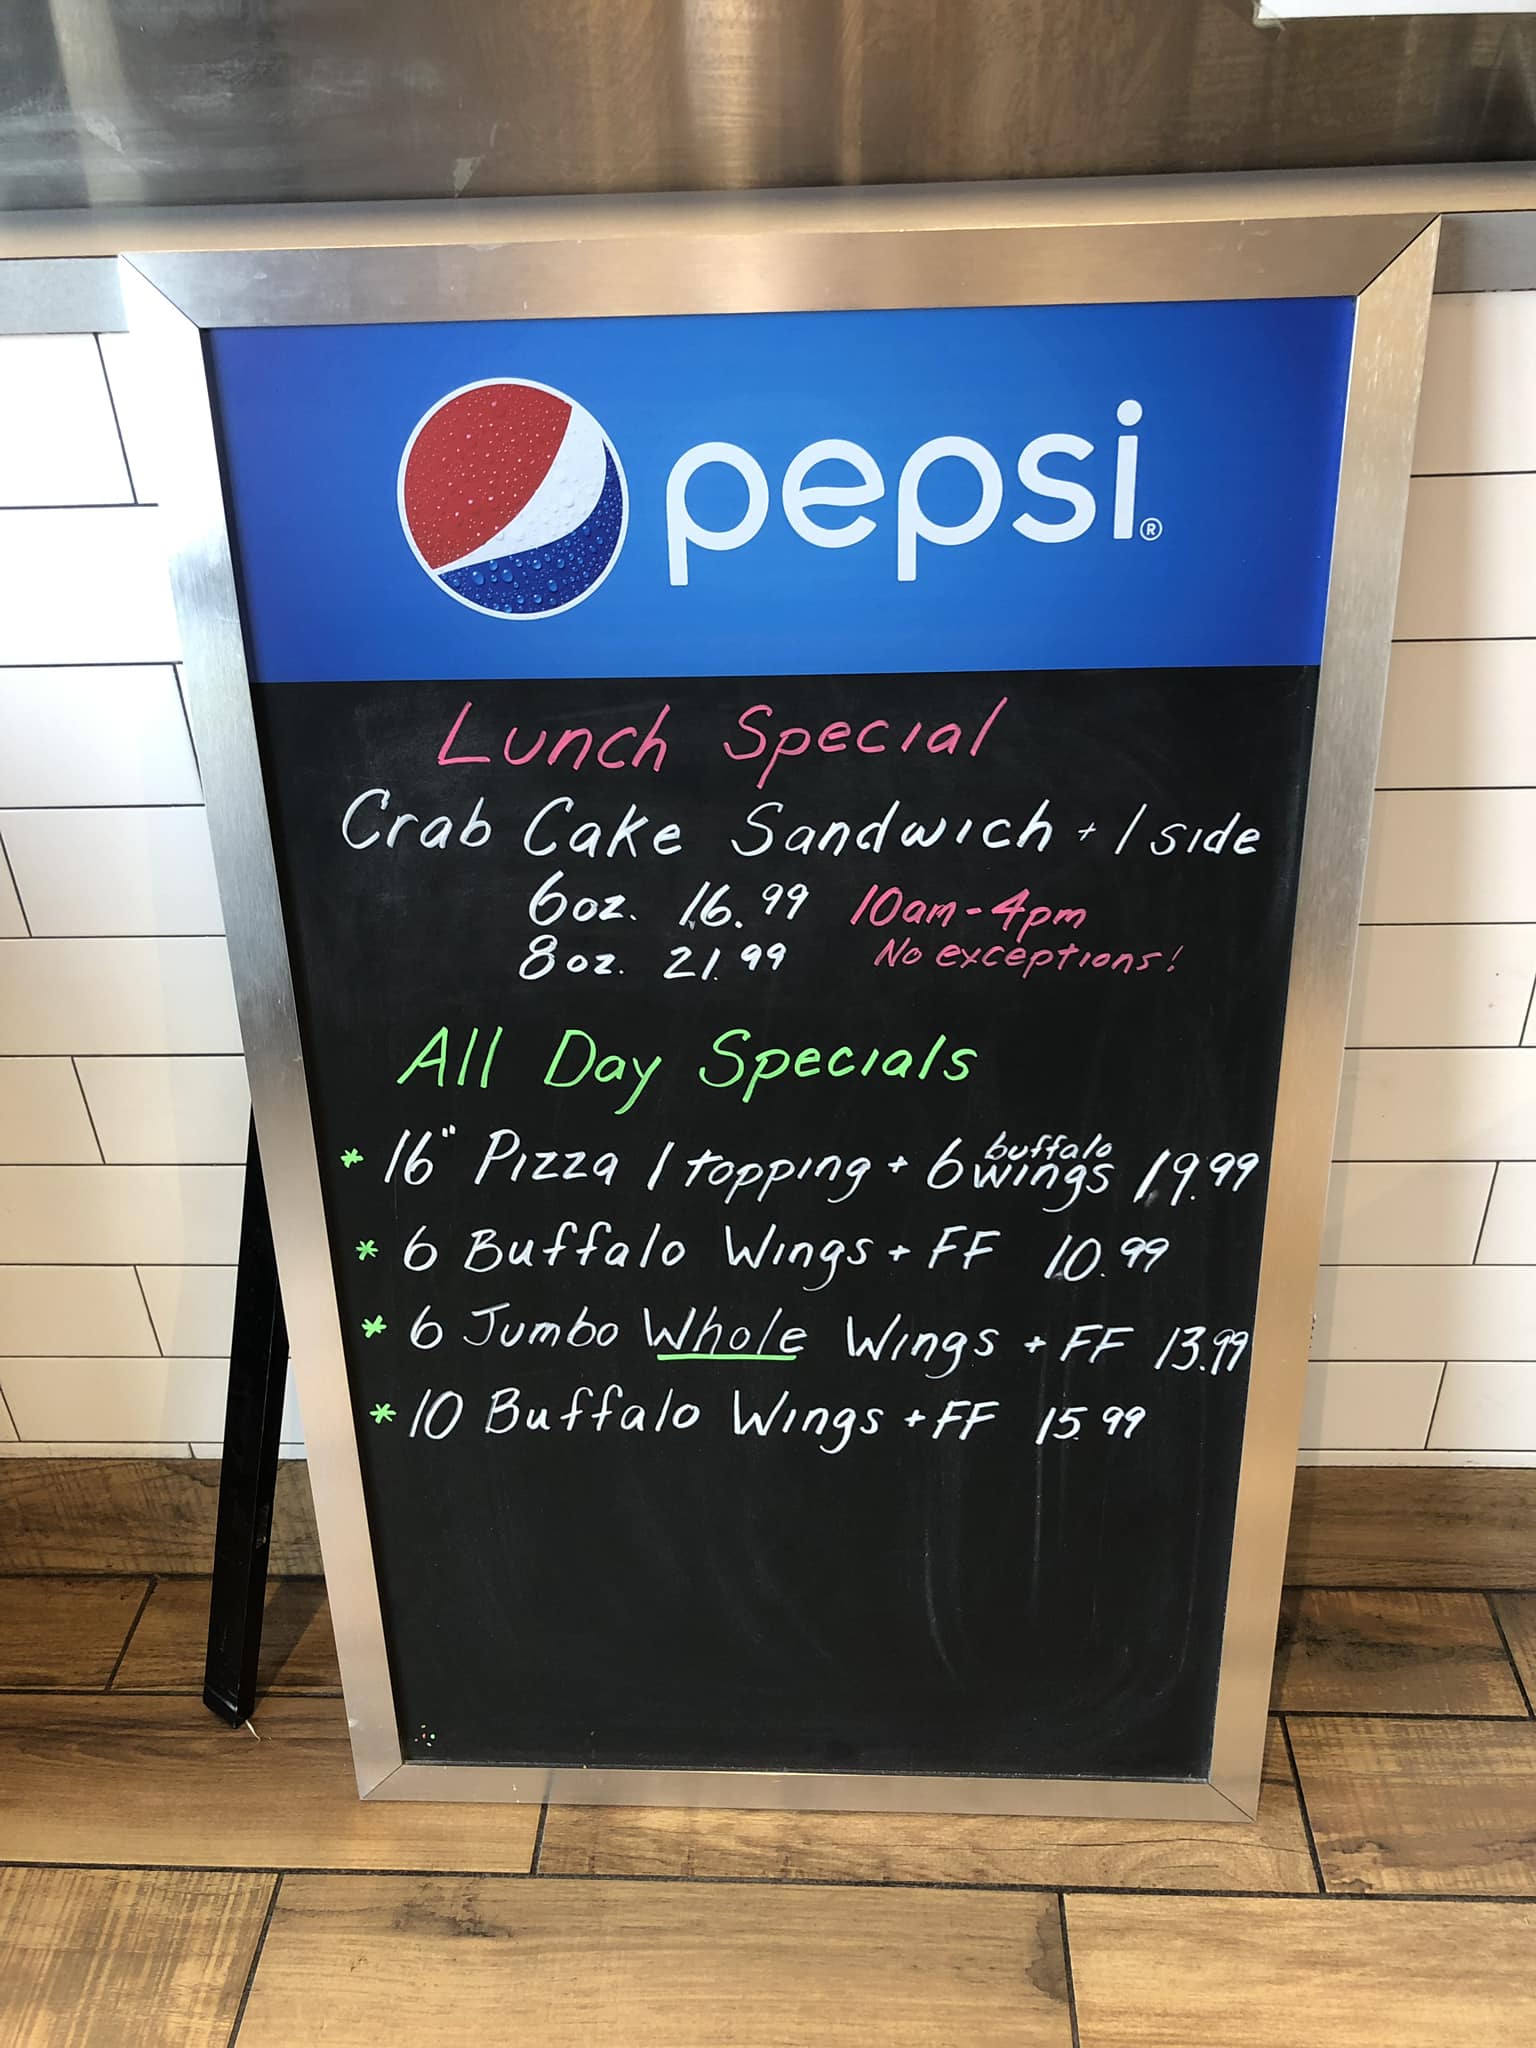 pepsi®
Lunch Special
Crab Cake Sandwich + 1 side
6oz. 16.99 10am-4pm
8oz. 21.99 No exceptions!
All Day Specials
* 16" Pizza 1 topping + 6 buffalo wings 19.99
* 6 Buffalo Wings + FF 10.99
* 6 Jumbo Whole Wings + FF 13.99
* 10 Buffalo Wings + FF 15.99